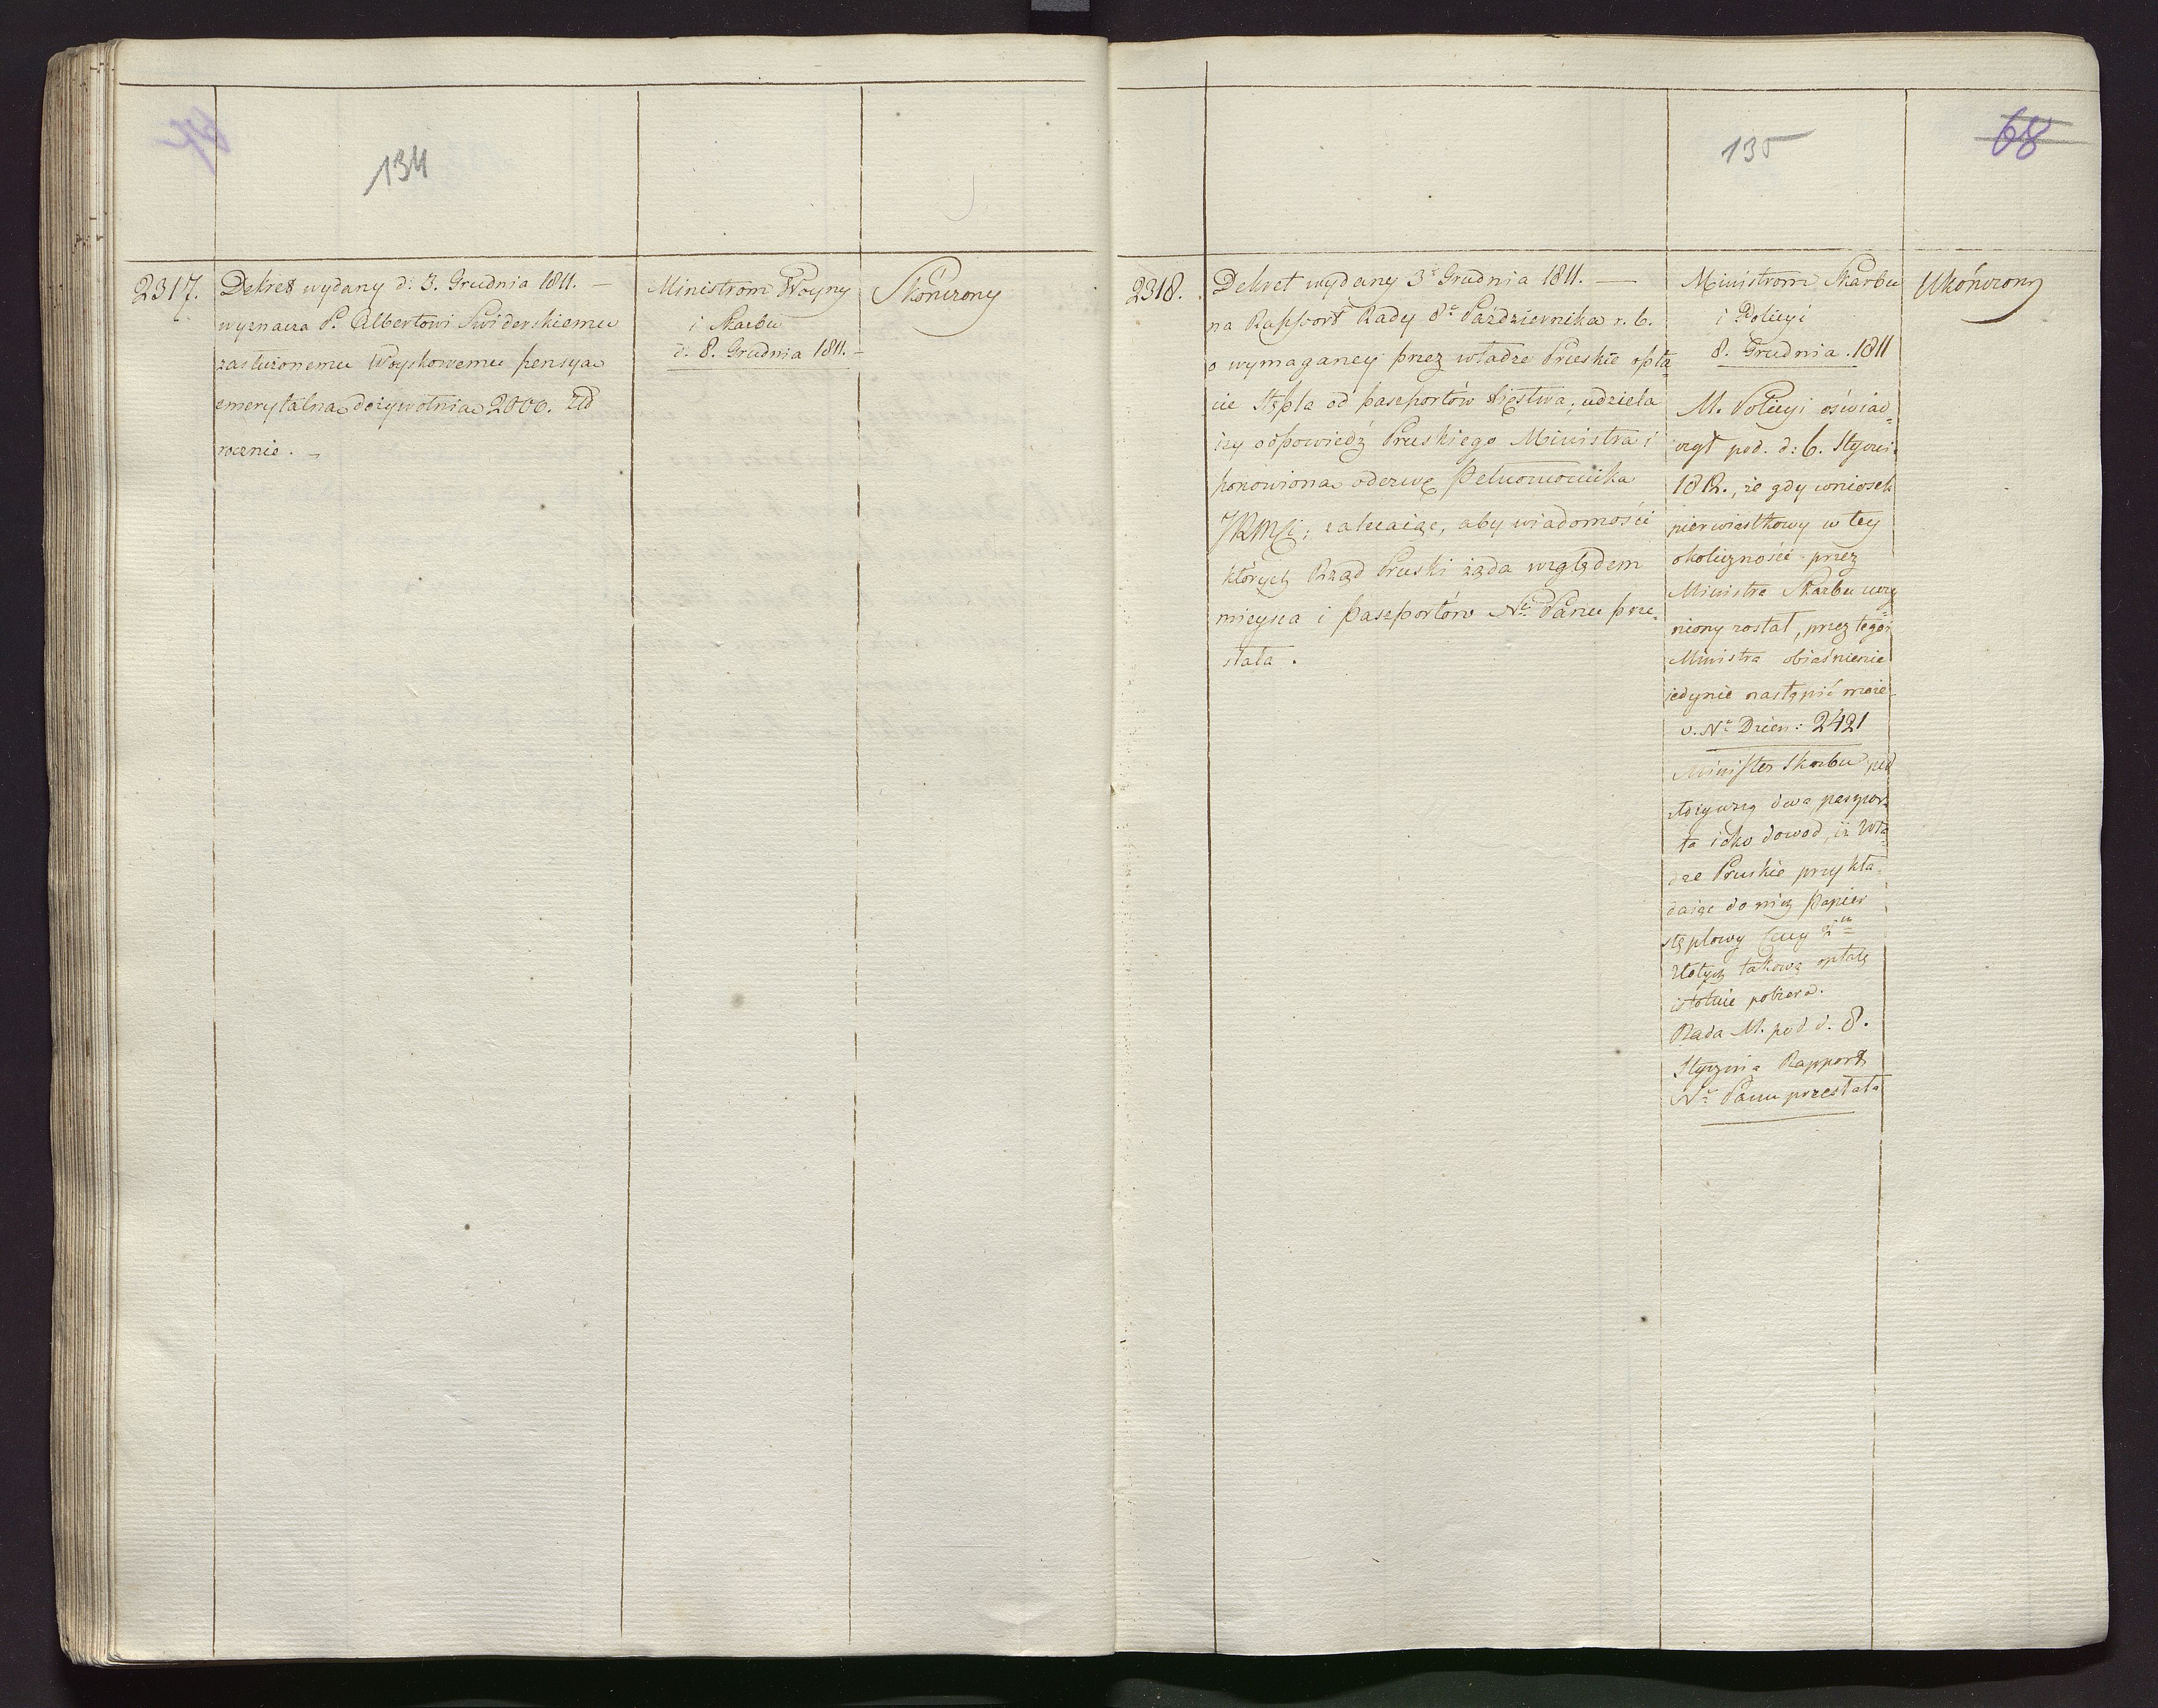 134
2317.
Dekret wydany d: 3. Grudnia 1811. —
wyznacza P. Albertowi Swiderskiemu
zasłużonemu Woyskowemu pensya
emerytalna dożywotnia 2000. Złł
rocznie. –
Ministrom Woyny
i Skarbu
d. 8. Grudnia 1811. –
Skończony
135
68
2318.
Dekret wydany 3º Grudnia 1811. —
na Rapport Rady 8º Października r. b.
o wymaganey przez władze Pruskie opła
cie Stępla od paszportów Xięstwa; udziela
iąc odpowiedź Pruskiego Ministra i
ponowiona odezwę Pełnomocnika
JKMCi; zalecaiąc, aby wiadomości
których Rząd Pruski żąda względem
mieysca i paszportów Nu Panu prze-
słała.
Ministrom Skarbu
i Policyi
8. Grudnia. 1811
M. Policyi oświad=
czył pod. d: 6. Stycz:
1812., że gdy wniosek
pierwiastkowy w tey
okoliczności przez
Ministra Skarbu uczy
niony został, przez tegoż
Ministra obiaśnienie
iedynie nastąpić może-
v. Nr Dzień: 2421
Minister Skarbu pod
dwa paszpor=
ta iako dowod, iż Wła=
dze Pruskie przykła=
daiąc do nich papier
stęplowy Ceny 2ch
Złotych takową opłatę
istotnie pobiera.
Rada M. pod d. 8.
Stycznia Rapport
Nu Panu przesłała
Ukończony